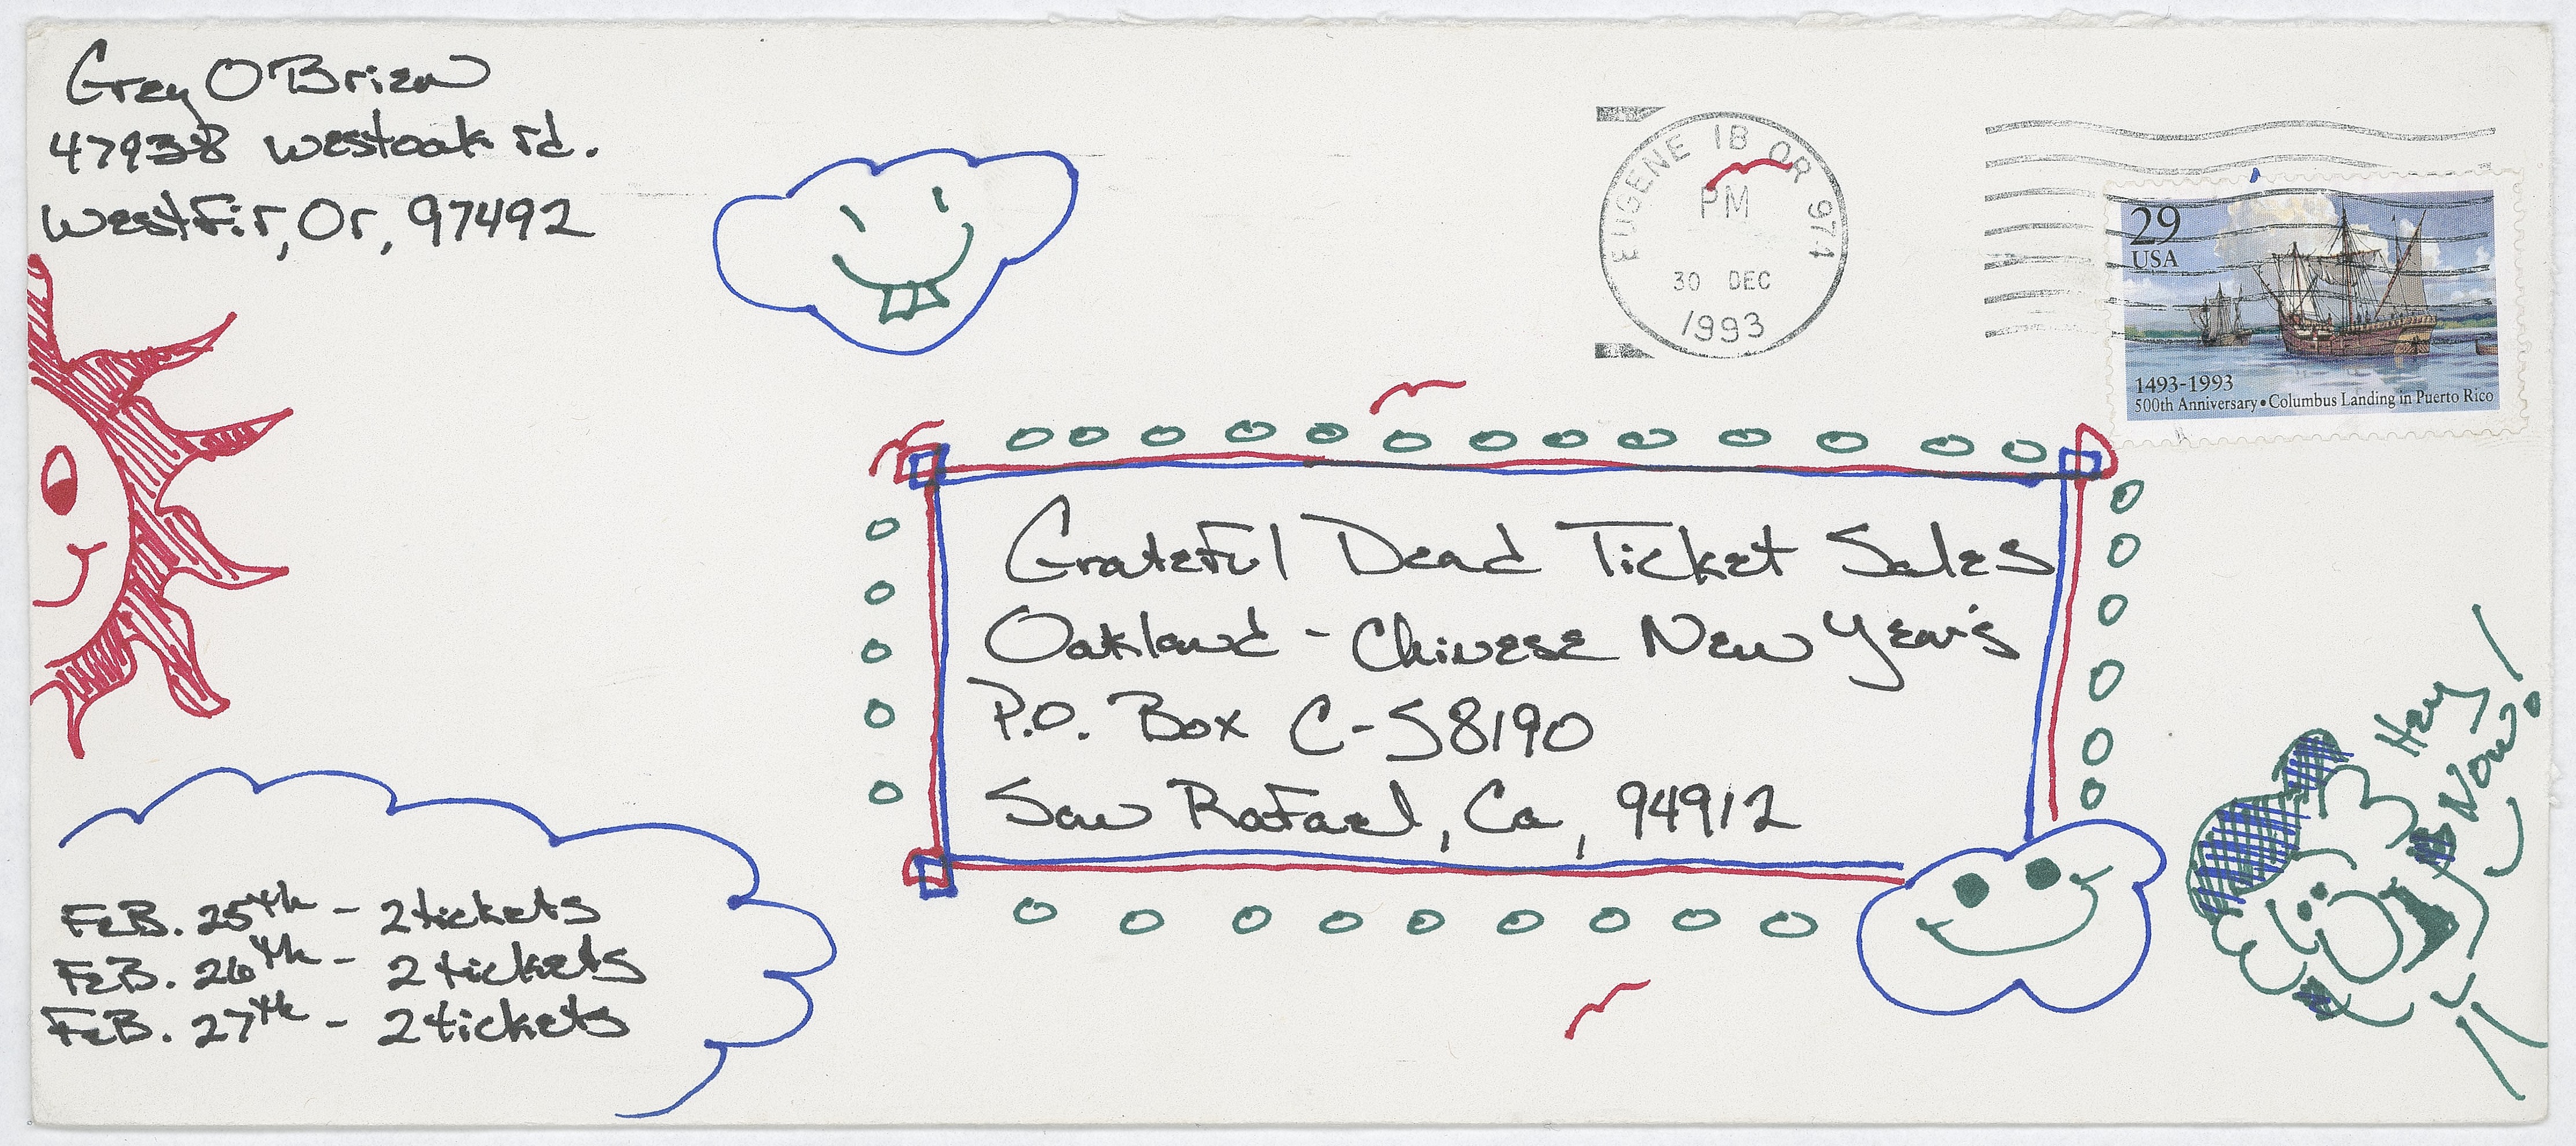 Greg O'Brien
47938 Westoak rd.
Westfir, Or, 97492
EUGENE IB OR 974
PM
30 DEC
1993
29
USA
1493-1993
500th Anniversary • Columbus Landing in Puerto Rico
Grateful Dead Ticket Sales
Oakland - Chinese New Year's
P.O. Box C-S8190
San Rafael, Ca, 94912
Hey
Now!
FeB. 25th - 2 tickets
FeB. 26th - 2 tickets
FeB. 27th - 2 tickets